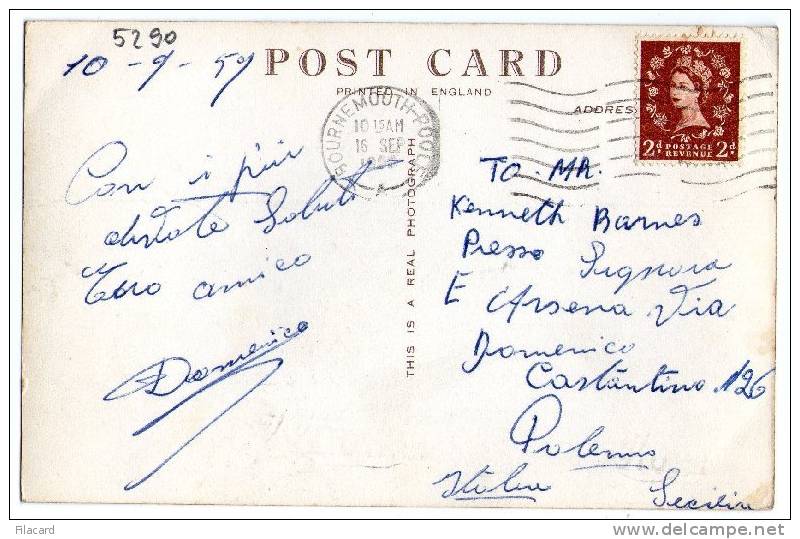 5290
10-9-59
POST CARD
PRINTED IN ENGLAND
ADDRESS
BOURNEMOUTH-POOLE
10 15AM
16 SEP
2d POSTAGE 2d
REVENUE
THIS IS A REAL PHOTOGRAPH
Con i più
distinte Saluti
tuo amico
Domenico
TO. MR.
Kenneth Barnes
Presso Signora
E Arsena Via
Domenico
Costantino N26
Palermo
Italia Secilia
Filacard
delcampe.net